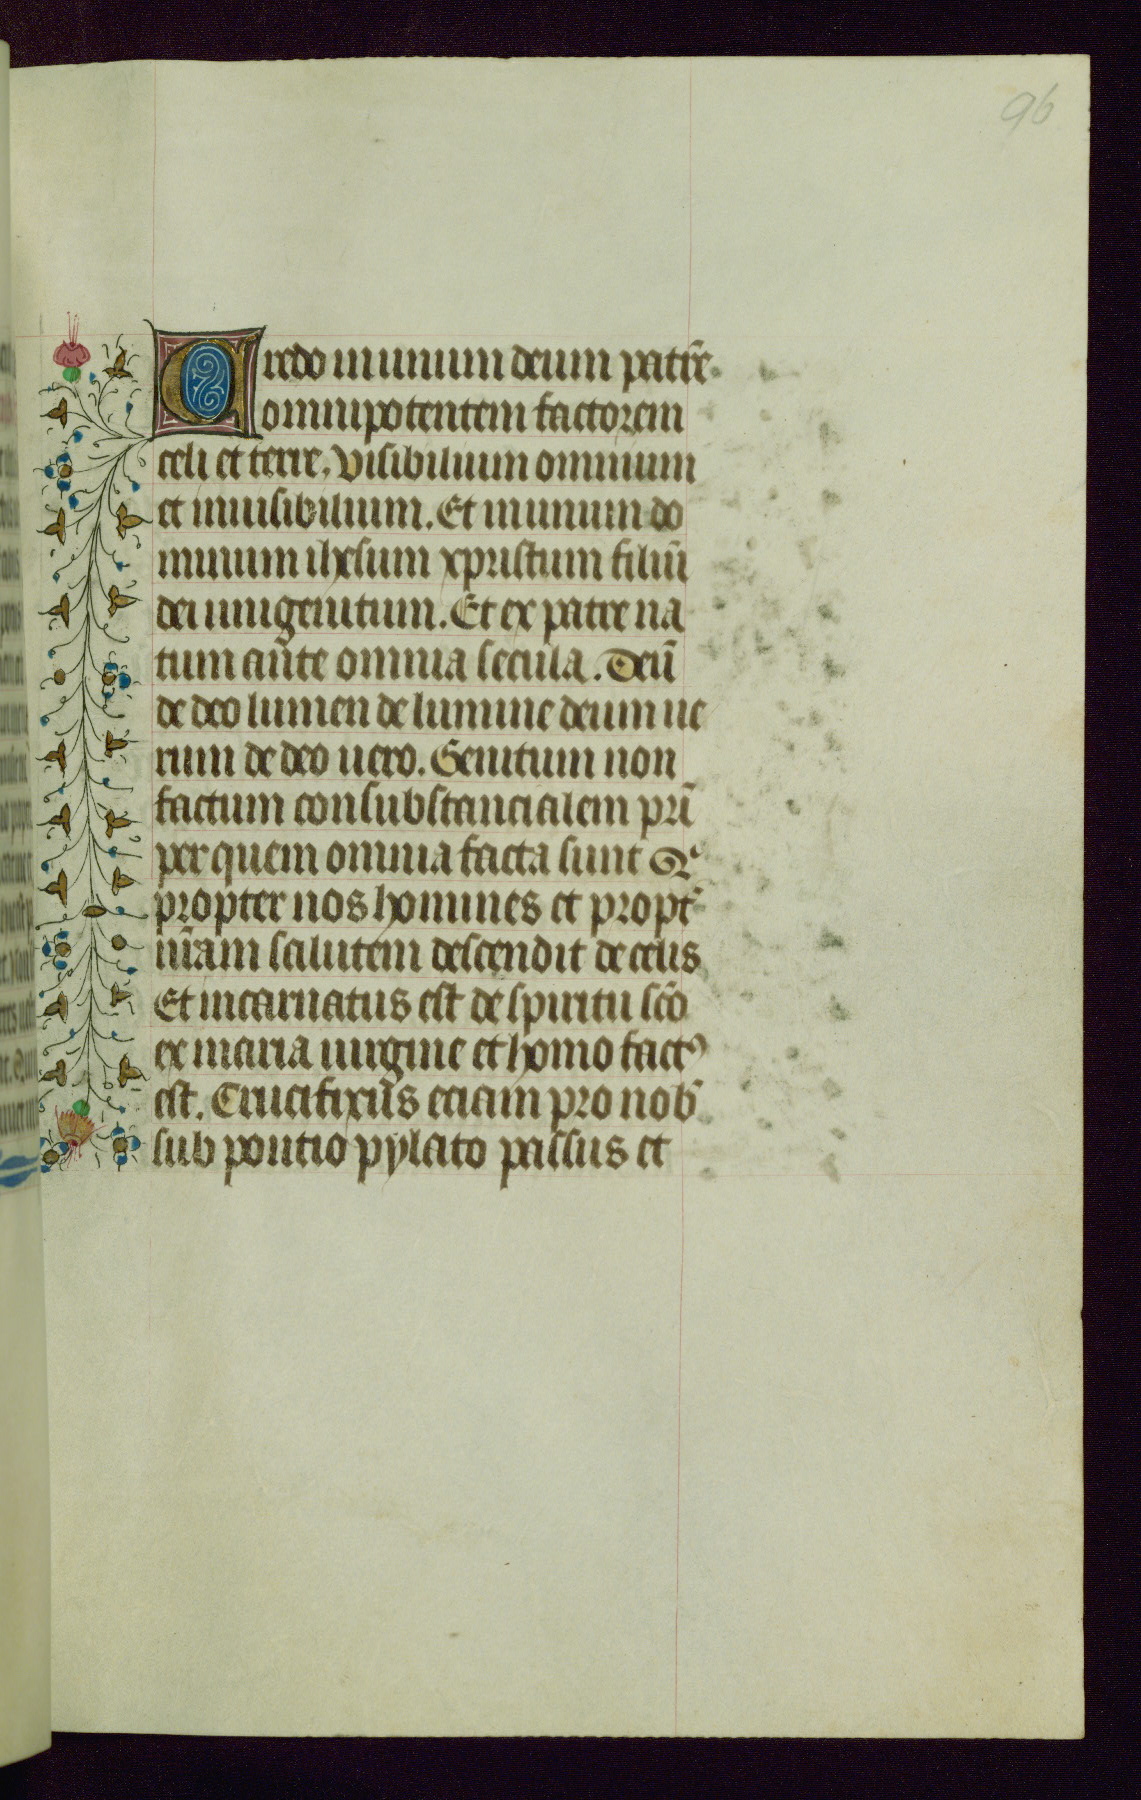 96
Credo in unum deum patrē
omnipotentem factorem
celi et terre. Visibilium omnium
et inuisibilium. Et in unum do
minum ihesum xpristum filiū
dei unigenitum. Et ex patre na
tum ante omnia secula. Deū
de deo lumen de lumine deum ue
rum de deo uero. Genitum non
factum consubstancialem pri̅
per quem omnia facta sunt Qͥ
propter nos homines et propt̾
nr̅am salutem descendit de celis
Et incarnatus est de spiritu sc̅o
ex maria uirgine et homo factꝰ
est. Crucifixus eciam pro nob̾
sub pontio pylato passus et